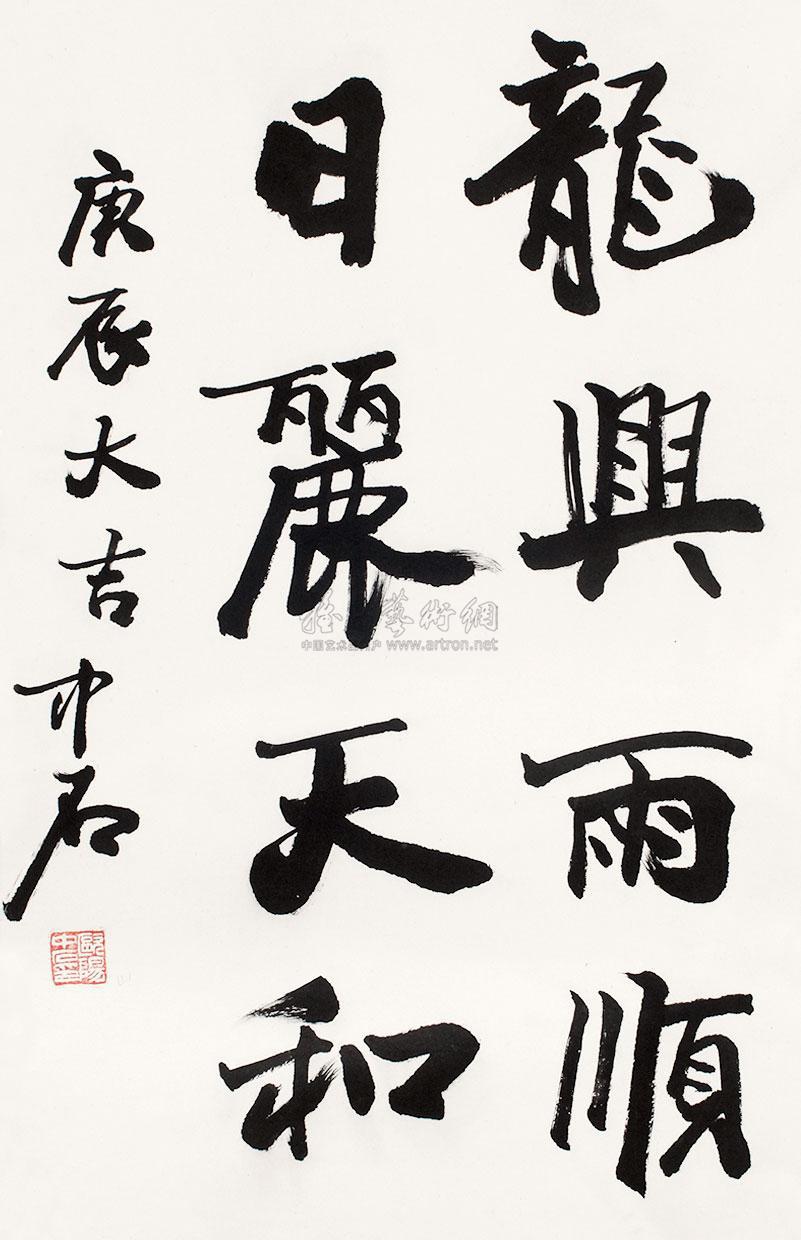 龍興雨順
日麗天和
庚辰大吉中石
歐陽中石
雅昌藝術網
中国艺术品门户 www.artron.net